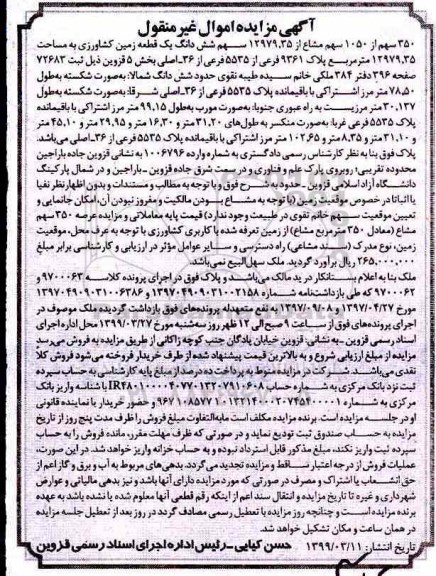 آگهی مزایده اموال غیر منقول
۳۵۰ سهم از ۱۰۵۰ سهم مشاع از ۱۲۹۷۹,۳۵ سهم شش دانگ یک قطعه زمین کشاورزی به مساحت
۱۲۹۷۹,۳۵ متر مربع پلاک ۹۳۶۱ فرعی از ۵۵۳۵ فرعی از ۳۶-اصلی بخش ۵ قزوین ذیل ثبت ۷۲۶۸۳
صفحه ۳۹۶ دفتر ۳۸۴ ملکی خانم سیده طیبه تقوی حدود شش دانگ شمالا: به صورت شکسته به طول
۷۸,۵۰ متر مرز اشتراکی با باقیمانده پلاک ۵۵۳۵ فرعی از ۳۶-اصلی شرقا: به صورت شکسته به طول
۳۰,۱۳۷ متر مرزیست به راه عبوری جنوبا: به صورت مورب به طول ۹۹,۱۵ متر مرز اشتراکی با باقیمانده
پلاک ۵۵۳۵ فرعی غربا: به صورت منکسر به طول های ۳۱,۲۰ متر و ۱۶,۳۰ متر و ۲۹,۹۵ متر و ۴۵,۱۰ متر
و ۳۱,۱۰ متر و ۸,۳۵ متر و ۱۰۲,۶۵ متر مرز اشتراکی با باقیمانده پلاک ۵۵۳۵ فرعی از ۳۶-اصلی می باشد.
پلاک فوق بنا به نظر کارشناس رسمی دادگستری به شماره وارده ۱۰۰۶۷۹۶ به نشانی قزوین جاده باراجین
محدوده تقریبی؛ روبروی پارک علم و فناوری و در سمت شرق جاده قزوین-باراجین و در شمال پارکینگ
دانشگاه آزاد اسلامی قزوین-حدودا به شرح فوق و با توجه به مطالب و مستندات و بدون اظهار نظر نفیا
یا اثباتا در خصوص موقعیت زمین (با توجه به مشاع بودن مالکیت و مفروز نبودن آن، امکان جانمایی و
تعیین موقعیت سهم خانم تقوی در طبیعت وجود ندارد) قیمت پایه معاملاتی و مزایده عرصه ۳۵۰ سهم
مشاع (معادل ۳۵۰ متر مربع مشاع) از زمین تعرفه شده با کاربری کشاورزی با توجه به عرف محل، موقعیت
زمین، نوع مدرک (سند مشاعی) راه دسترسی و سایر عوامل مؤثر در ارزیابی و کارشناسی برابر مبلغ
۲۶۵,۰۰۰,۰۰۰ ریال برآورد گردید. ملک سهل البیع نمی باشد
ملک بنا به اعلام بستانکار در ید مالک می باشد و پلاک فوق در اجرای پرونده کلاسه ۹۷۰۰۰۶۳ و
۹۷۰۰۰۶۲ که طی بازداشت نامه شماره ۱۳۹۷۰۴۹۰۹۰۳۱۰۰۲۱۵۸ و ۱۳۹۷۰۴۹۰۹۰۳۱۰۰۶۳۸۶
مورخ ۱۳۹۷/۰۴/۲۷ و ۱۳۹۷/۰۷/۰۸ به نفع متعهدله پرونده های فوق بازداشت گردیده ملک موصوف در
اجرای پرونده های فوق از ساعت ۹ صبح الی ۱۲ ظهر روز سه شنبه مورخ ۱۳۹۹/۰۳/۲۷ محل اداره اجرای
اسناد رسمی قزوین-به نشانی: قزوین خیابان پادگان جنب کوچه زاکانی از طریق مزایده به فروش می رسد
مزایده از مبلغ ارزیابی شروع و به بالاترین قیمت پیشنهاد شده از طرف خریدار فروخته می شود فروش کلا
نقدی می باشد. شرکت در مزایده منوط به پرداخت ده درصد از مبلغ پایه کارشناسی به حساب سپرده
ثبت نزد بانک مرکزی به شماره حساب IR۴۸۰۱۰۰۰۰۴۰۷۷۰۱۳۲۰۷۹۱۰۶۰۸ با شناسه واریز بانک
مرکزی به شماره ۹۶۷۱۰۸۵۷۷۱۰۱۳۲۱۴۰۰۲۰۷۴۵۴۰۰۰۰۱ و حضور خریدار یا نماینده قانونی
او در جلسه مزایده است. برنده مزایده مکلف است مابه التفاوت مبلغ فروش را ظرف مدت پنج روز از تاریخ
مزایده به حساب صندوق ثبت تودیع نماید و در صورتی که ظرف مهلت مقرر، مانده فروش را به حساب
سپرده ثبت واریز نکند، مبلغ مذکور قابل استرداد نبوده و به حساب خزانه واریز خواهد شد. در این صورت،
عملیات فروش از درجه اعتبار ساقط و مزایده تجدید می گردد. بدهی های مربوط به آب و برق و گاز اعم از
حق انشعاب یا اشتراک و مصرف در صورتی که مورد مزایده دارای آنها باشد و نیز بدهی مالیاتی و عوارض
شهرداری و غیره تا تاریخ مزایده و انتقال سند اعم از اینکه رقم قطعی آنها معلوم شده یا نشده باشد به عهده
برنده مزایده است و چنانچه روز مزایده با تعطیل رسمی مصادف گردد در روز بعد از تعطیل جلسه مزایده
در همان ساعت و مکان تشکیل خواهد شد.
تاریخ انتشار: ۱۳۹۹/۰۳/۱۱ حسن کیایی-رئیس اداره اجرای اسناد رسمی قزوین